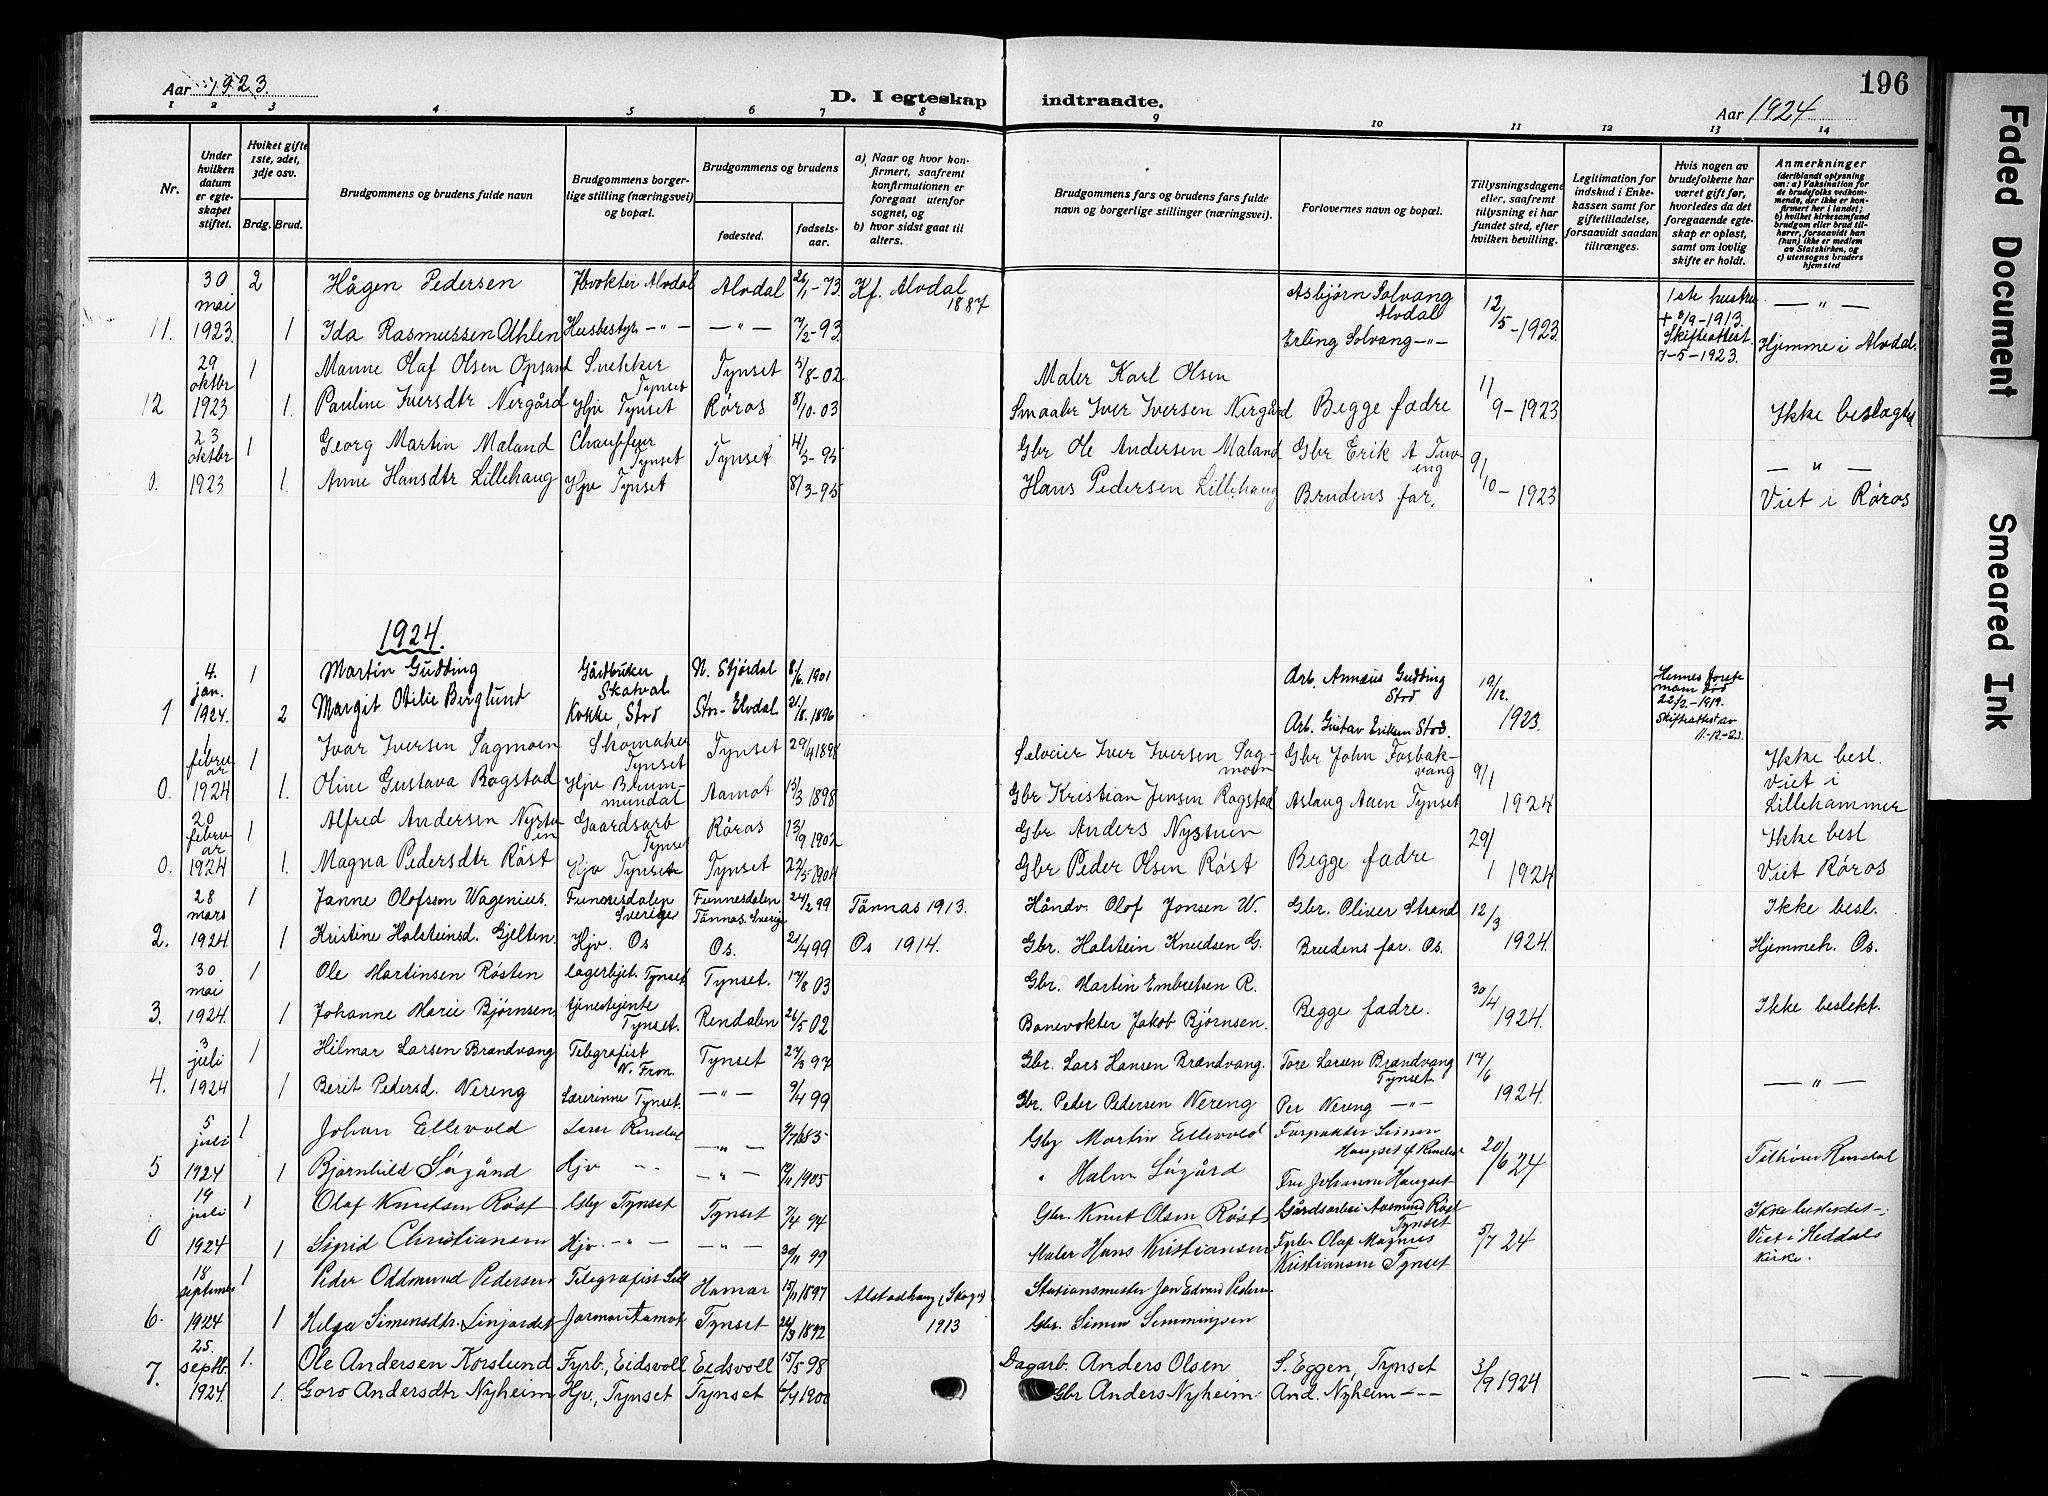 Aar 1923.
D. I egteskap indtraadte.
Aar 1924
196
1 2 3 4 5 6 7 8 9 10 11 12 13 14
Nr.
Under hvilken datum er egteskapet stiftet.
Hviket gifte 1ste, 2det, 3dje osv.
Brdg. Brud.
Brudgommens og brudens fulde navn
Brudgommens borgerlige stilling (næringsvei) og bopæl.
Brudgommens og brudens
fødested.
fødselsaar.
a) Naar og hvor konfirmert, saafremt konfirmationen er foregaat utenfor sognet, og
b) hvor sidst gaat til alters.
Brudgommens fars og brudens fars fulde navn og borgerlige stillinger (næringsvei).
Forlovernes navn og bopæl.
Tillysningsdagene eller, saafremt tillysning ei har fundet sted, efter hvilken bevilling.
Legitimation for indskud i Enkekassen samt for giftetilladelse, forsaavidt saadan tiltrænges.
Hvis nogen av brudefolkene har været gift før, hvorledes da det foregaaende egteskap er opløst, samt om lovlig skifte er holdt.
Anmerkninger (deriblandt oplysning om: a) Vaksination for de brudefolks vedkommende, der ikke er konfirmert her i landet; b) hvilket kirkesamfund brudgom eller brud tilhører, forsaavidt han (hun) ikke er medlem av Statskirken, og c) utensogns bruders hjemsted
30 mai 2 Hågen Pedersen Alvdal Alvdal 26/1-73 Kf. Alvdal 1887 Asbjørn Solvang Alvdal 12/5-1923 1ste hustru — " —
11. 1923 1 Ida Rasmussen Øhlen Husbestyr. — " — — " — 7/2-93 Erling Solvang — " — + 8/9-1913. Skifteattest 7-5-1923. Hjemme i Alvdal.
29 oktbr 1 Manne Olaf Olsen Opsand Snekker Tynset Tynset 5/8-02 Maler Karl Olsen 11/9-1923
12 1923 1. Pauline Iversdtr Nergård Hjv Tynset Røros 8/10-03 Smaabr Iver Iversen Nergård Begge fædre Ikke beslægtet
23 oktbr 1 Georg Martin Maland Chauffeur Tynset Tynset 4/3-95 Gbr Ole Andersen Maland Gbr Erik A Tuveng 9/10-1923 — " —
0. 1923 1. Anne Hansdtr Lillehaug Hjv Tynset 8/3-95 Hans Pedersen Lillehaug Brudens far. Viet i Røros
1924.
4. jan. 1 Martin Gudding Gårdbruker Skatval N. Stjørdal 8/6.1901 Arb. Annæus Gudding Stod 19/12. 1923. Hennes forste mann død 22/2-1919.
1 1924. 2 Margit Otilie Berglund Kokke, Stod Stor-Elvdal 21/8.1896 Arb. Gustav Eriksen Stod. Skifteattest av 11-12-23.
1 februar 1 Ivar Iversen Sagmoen Skomaker Tynset Tynset 29/4 1898 Sæleier Iver Iversen Sagmoen Gbr John Fosbakvang 9/1 1924 Ikke besl.
0. 1924 1. Oline Gustava Rogstad Hjv Brummundal Aamot 13/3 1898 Gbr Kristian Jensen Rogstad Aslaug Aaen Tynset Viet i Lillehammer
20 februar 1 Alfred Andersen Nystuen Gaardsarb Tynset Røros 13/9 1902 Gbr Anders Nystuen Begge fædre 29/1 1924 Ikke besl
0. 1924 1. Magna Pedersdtr Røst Hjv Tynset Tynset 22/5 1904 Gbr Peder Olsen Røst Viet Røros
28 mars 1 Janne Olofsson Wagenius. Funnesdalen Sverige Funnesdalen Tännas. Sverige 24/2 99 Tännas 1913. Håndv. Olof Jonsen W. Gbr. Oliver Strand 12/3 1924. Ikke besl.
2. 1924. 1 Kristine Holsteinsd. Gjelten. Hjv. Os Os. 21/4 99 Os 1914. Gbr. Holstein Knudsen G. Brudens far. Os. Hjemmeh. Os.
30 mai 1 Ole Martinsen Røsten lagerbjet. Tynset Tynset. 17/8 03 Gbr. Martin Embretsen R. Begge fædre. 30/4 1924. Ikke beslekt.
3. 1924. 1 Johanne Marie Bjørnsen tjenestejente Tynset. Rendalen 26/5 02 Banevokter Jakob Bjørnsen.
3 juli 1 Hilmar Larsen Brændvang Telegrafist N. Fron. Tynset 27/3 97 Gbr. Lars Hansen Brændvang. Tore Larsen Brændvang Tynset. 17/6 1924. — " —
4. 1924 1 Berit Pedersd. Nereng Lærerinne Tynset. — " — 9/4 99 Gbr. Peder Pedersen Nereng Per Nereng — " —
5 juli 1 Johan Ellevold Lærer Rendal — " — Gbr Martin Ellevold Forpakter Simen Haugset 20/6 24 Tilhører Rendal
5 1924 1 Bjørnhild Søgård Hjv " " — " — 1905 " Halvor Søgård Fru Johanne Haugset
19 juli 1 Olaf Knutsen Røst Gby Tynset Tynset 7/4 94 Gbr. Knut Olsen Røst Gårdsarbei Aasmund Røst Tynset 5/7 24 Ikke beslektet
0 1924 1 Sigrid Christiansen Hjv. — " — — " — 30/11 99 Maler Hans Kristiansen Fyrb. Olaf Magnus Kristiansen Tynset Viet i Heddals kirke.
18 september 1 Peder Oddmund Pedersen Telegrafist Hamar 15/11 1897 Alstadhaug (Skogn) Stasjonsmester Jon Edvard Pedersen
6. 1924 1 Helga Simensdtr. Linjordet Tynset 24/3 1892 1913 Gbr. Simen Simmingsen
25. septb. 1. Ole Andersen Korslund Fyrb., Eidsvoll Eidsvoll 15/5 98 Dagarb. Anders Olsen S. Eggen, Tynset 3/9 1924 — " —
7. 1924. 1. Goro Andersdtr Nyheim Hjv., Tynset Tynset 6/4 1900 Gbr Anders Nyheim And. Nyheim — " —
Faded Document
Smeared Ink